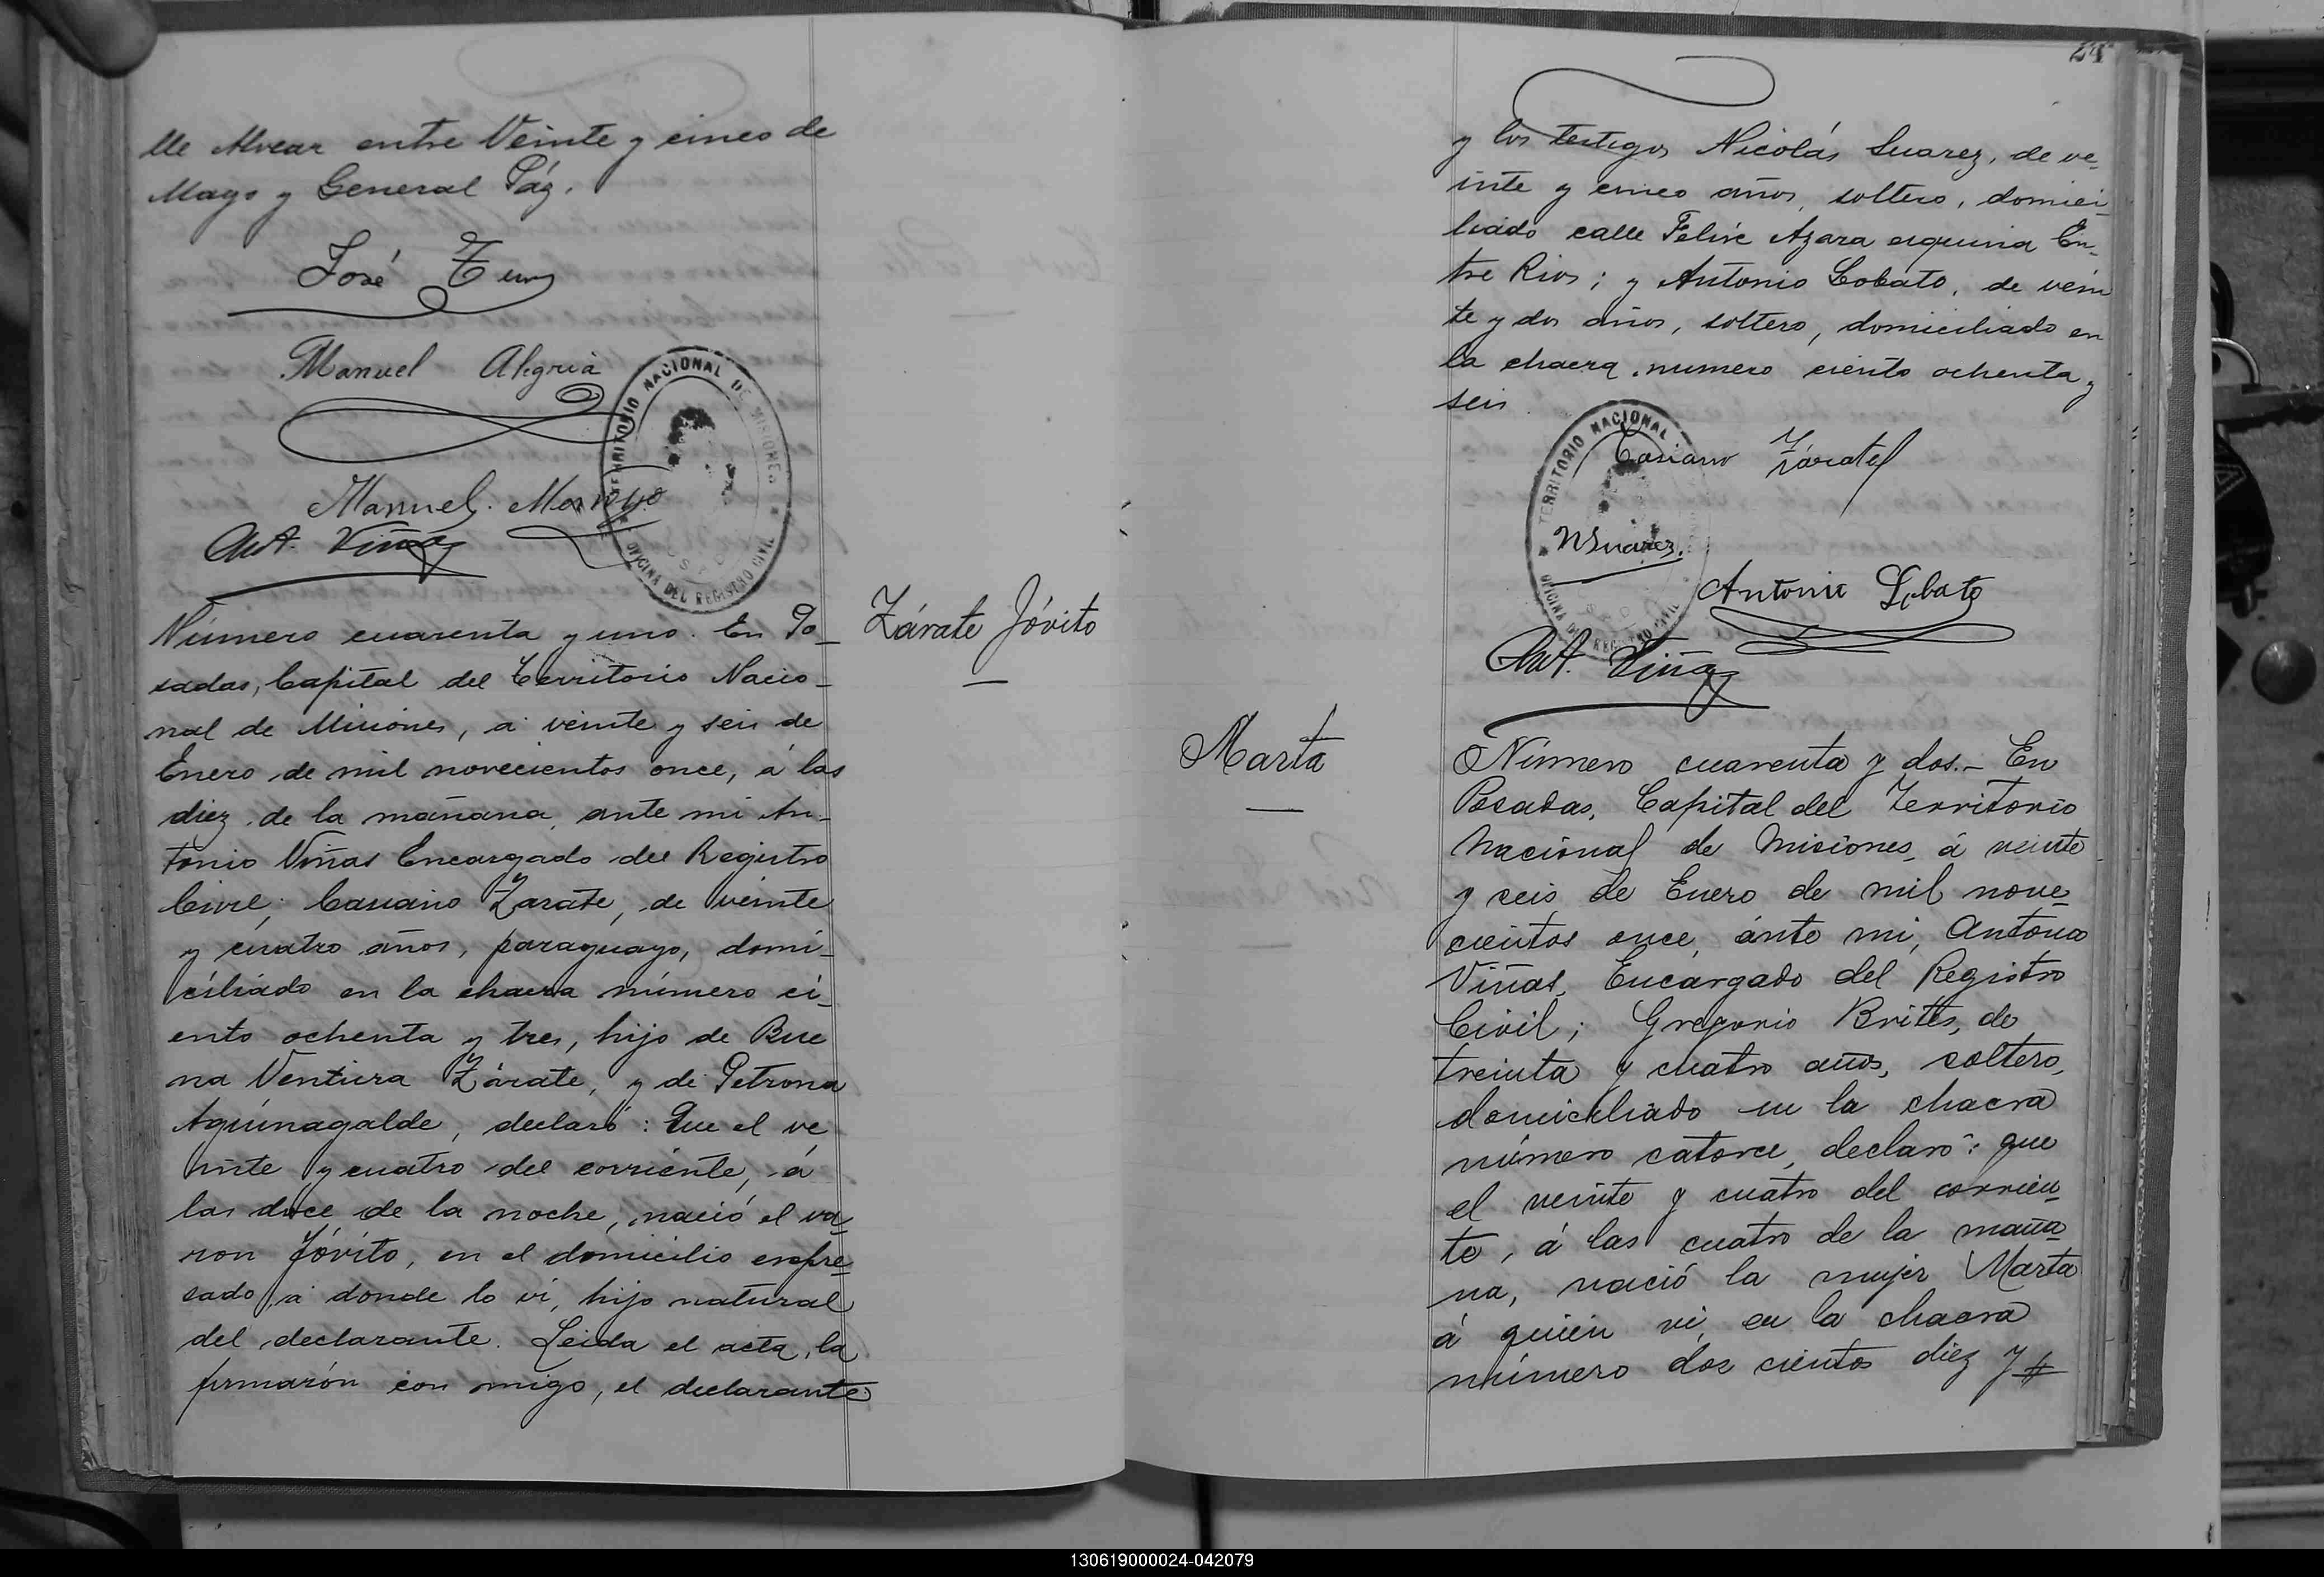 lle Alvear entre Veinte y cinco de
Mayo y General Páz.
José
Manuel Alegria
TERRITORIO NACIONAL DE MISIONES
OFICINA DEL REGISTRO CIVIL
Manuel
Ant. Viñas
Número cuarenta y uno. En Po-
sadas, Capital del Territorio Nacio-
nal de Misiones, a veinte y seis de
Enero de mil novecientos once, á las
diez de la mañana, ante mi An-
tonio Viñas Encargado del Registro
Civil; Casiano Zarate, de veinte
y cuatro años, paraguayo, domi-
ciliado en la chacra número ci-
ento ochenta y tres, hijo de Bue
na Ventura Zárate, y de Petrona
Aguinagalde, declaró: Que el ve
inte y cuatro del corriente, á
las doce de la noche, nació el va
ron Jóvito, en el domicilio expre-
sado, a donde lo vi, hijo natural
del declarante. Leida el acta, la
firmarón con migo, el declarante
Zárate Jóvito
24
y los testigos Nicolás Suarez, de ve-
inte y cinco años, soltero, domici-
liado calle Felix Azara esquina En-
tre Rios; y Antonio Lobato, de vein
te y dos años, soltero, domiciliado en
la chacra numero ciento ochenta y
seis
TERRITORIO NACIONAL
OFICINA DEL REGISTRO CIVIL
Casiano Zárate
NSuarez.
Antonio Lobato
Ant. Viñas
Marta
Número cuarenta y dos.- En
Posadas, Capital del Territorio
Nacional de Misiones, á veinte
y seis de Enero de mil nove-
cientos once, ánte mi, Antonio
Viñas, Encargado del Registro
Civil; Gregorio Brites, de
treinta y cuatro años, soltero,
domiciliado en la chacra
número catorce, declaró: que
el veinte y cuatro del corrien-
te, á las cuatro de la maña-
na, nació la mujer Marta
á quien vi, en la chacra
número dos cientos diez y #
130619000024-042079